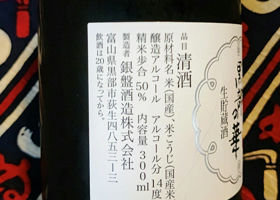 黒部の華
生貯蔵酒
品目 清酒
原材料名 米(国産)、米こうじ(国産米
醸造アルコール アルコール分 14度
精米歩合 50% 内容量 300ml
製造者 銀盤酒造株式会社
富山県黒部市荻生四八五三ー三
飲酒は20歳になってから。